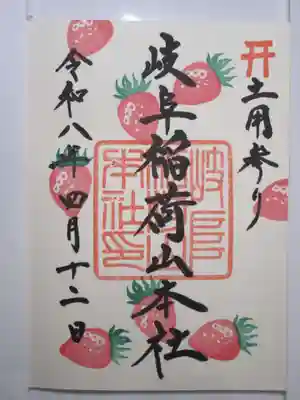 土用参り
岐阜稲荷山本社
岐阜稲荷山本社印
令和八年四月十二日